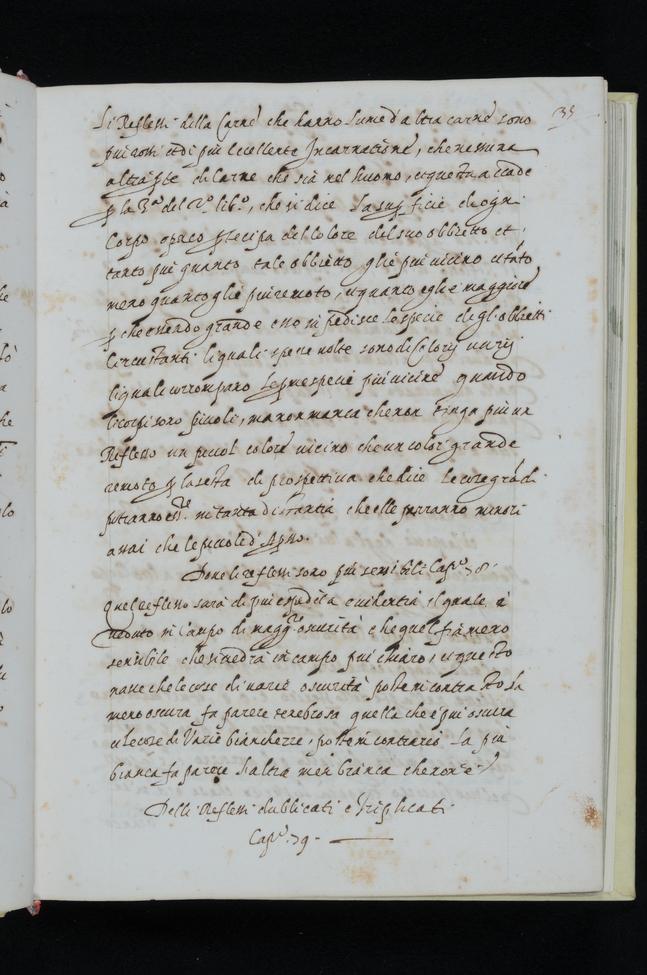 35
Li Reflessi della Carne che hanno lume d'altra carne sono
piu rossi et di piu Eccellente Incarnatione, che nessuna
altra pte di Carne che sia nel huomo, e questa accade
p la 3ª del 2º libº, che si dice la supficie di ogni
Corpo opaco ptecipa del Colore del suo obbietto et
tanto piu quanto tale obbietto gli è piu vicino et tãto
meno quanto gli è piu remoto, e quanto egli è maggiore
p che essendo grande esso impedisce le specie degl'obbietti
Circustanti li quali spesse volte sono di Colorij varij
li quali corrompano le pme specie piu vicine quando
li corpi sono piccoli, ma non manca che non tinga piu un
Reflesso un piccol colore vicino che un color grande
remoto p la sesta di prospettiva che dice le cose grãdi
potranno essre in tanta distantia che elle parranno minori
assai che le piccole d'Apso.
Dove li reflessi sono piu sensibili Capº. 78.
Quel reflesso sarà di piu espedita evidentia il quale è
veduto in Campo di maggre oscurità e che quel fia meno
sensibile che si vedrà in campo piu chiaro, e questo
nasce che le cose di varie oscurità poste in contrasto la
meno oscura fa parere tenebrosa quella che è piu oscura
e le cose di varie bianchezze, poste in contrario la più
bianca fa parere l'altra men bianca che non è
Delli Reflessi dubblicati e triplicati
Capº. 79.